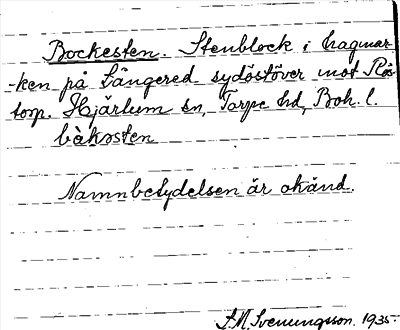 Bockesten. Stenblock i hagmar-
-ken på Långered sydöstöver mot Rös
torp. Hjärtum sn, Torpe hd, Boh. l.
bàkɔsten
Namnbetydelsen är okänd.
F. M. Svenungsson. 1935.